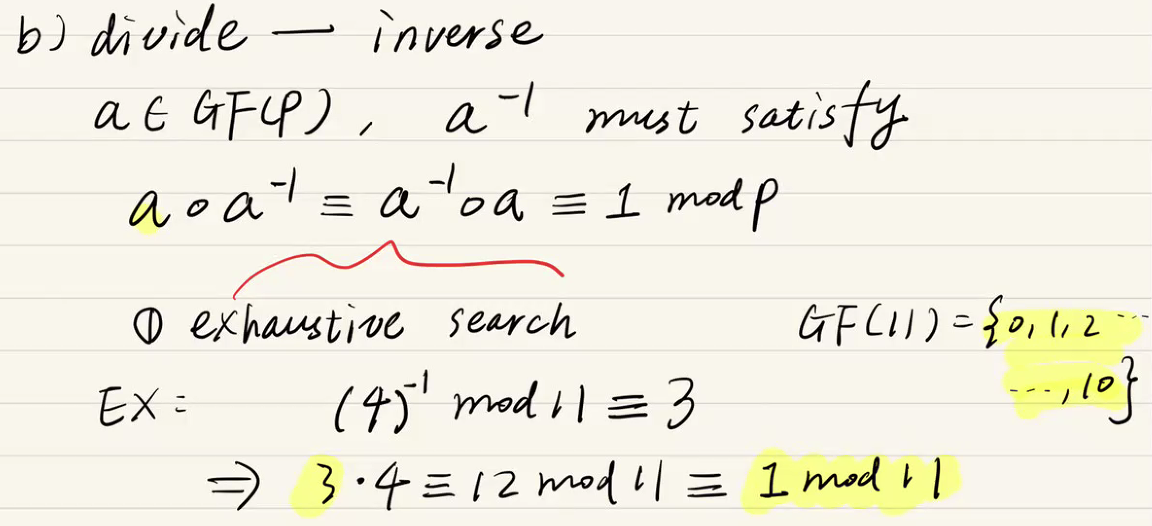 b) divide — inverse
a ∈ GF(p), a⁻¹ must satisfy
a ∘ a⁻¹ ≡ a⁻¹ ∘ a ≡ 1 mod p
① exhaustive search GF(11) = {0, 1, 2 ...
..., 10}
EX: (4)⁻¹ mod 11 ≡ 3
⇒ 3 · 4 ≡ 12 mod 11 ≡ 1 mod 11